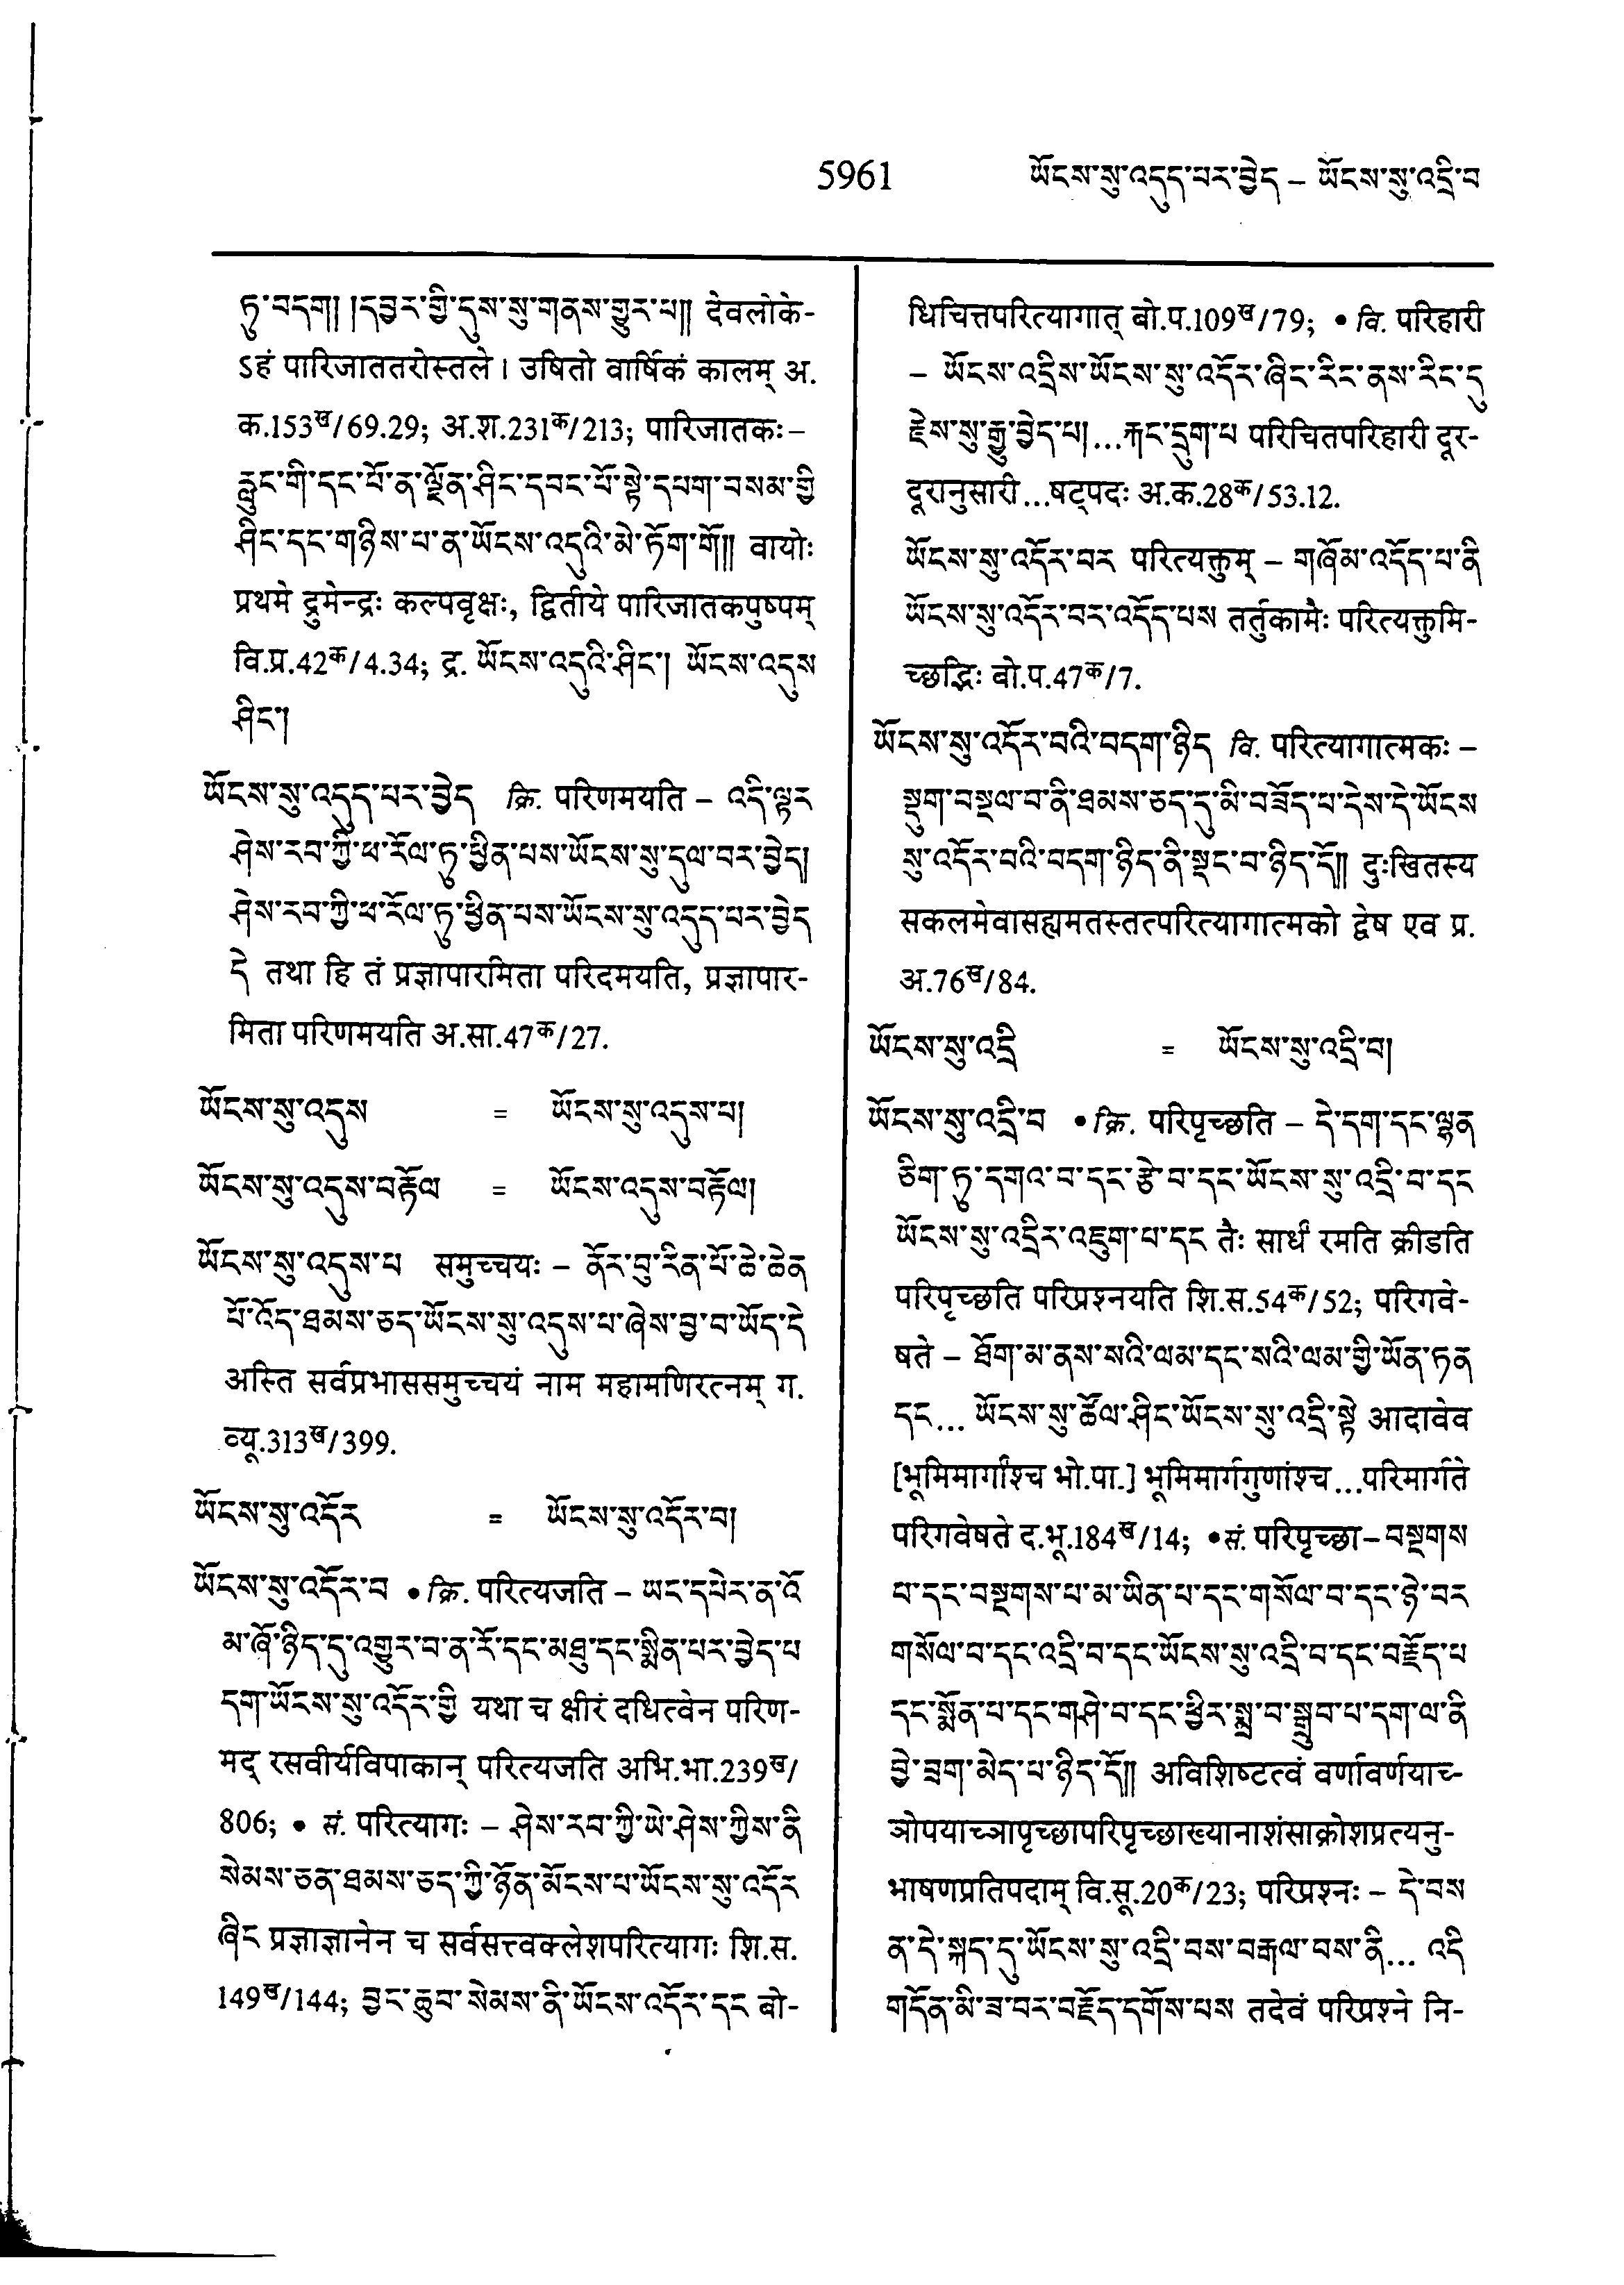 5961 ཡོངས་སུ་འདུད་པར་བྱེད – ཡོངས་སུ་འདྲི་བ
ཏུ་བདག། །དབྱར་གྱི་དུས་སུ་གནས་གྱུར་པ།། देवलोके-
ऽहं पारिजाततरोस्तले। उषितो वार्षिकं कालम् अ.
क.153ख/69.29; अ.श.231क/213; पारिजातकः–
རླུང་གི་དང་པོ་ན་ལྗོན་ཤིང་དབང་པོ་སྟེ་དཔག་བསམ་གྱི
ཤིང་དང་གཉིས་པ་ན་ཡོངས་འདུའི་མེ་ཏོག་གོ།། वायोः
प्रथमे द्रुमेन्द्रः कल्पवृक्षः, द्वितीये पारिजातकपुष्पम्
वि.प्र.42क/4.34; द्र. ཡོངས་འདུའི་ཤིང་། ཡོངས་འདུས
ཤིང་།
ཡོངས་སུ་འདུད་པར་བྱེད क्रि. परिणमयति – འདི་ལྟར
ཤེས་རབ་ཀྱི་ཕ་རོལ་ཏུ་ཕྱིན་པས་ཡོངས་སུ་དུལ་བར་བྱེད།
ཤེས་རབ་ཀྱི་ཕ་རོལ་ཏུ་ཕྱིན་པས་ཡོངས་སུ་འདུད་པར་བྱེད
དེ तथा हि तं प्रज्ञापारमिता परिदमयति, प्रज्ञापार-
मिता परिणमयति अ.सा.47क/27.
ཡོངས་སུ་འདུས = ཡོངས་སུ་འདུས་པ།
ཡོངས་སུ་འདུས་བརྟོལ = ཡོངས་འདུས་བརྟོལ།
ཡོངས་སུ་འདུས་པ समुच्चयः – ནོར་བུ་རིན་པོ་ཆེ་ཆེན
པོ་འོད་ཐམས་ཅད་ཡོངས་སུ་འདུས་པ་ཞེས་བྱ་བ་ཡོད་དེ
अस्ति सर्वप्रभाससमुच्चयं नाम महामणिरत्नम् ग.
व्यू.313ख/399.
ཡོངས་སུ་འདོར = ཡོངས་སུ་འདོར་བ།
ཡོངས་སུ་འདོར་བ •क्रि. परित्यजति – ཡང་དཔེར་ན་འོ
མ་ཞོ་ཉིད་དུ་འགྱུར་བ་ན་རོ་དང་མཐུ་དང་སྨིན་པར་བྱེད་པ
དག་ཡོངས་སུ་འདོར་གྱི यथा च क्षीरं दधित्वेन परिण-
मद् रसवीर्यविपाकान् परित्यजति अभि.भा.239ख/
806; • सं. परित्यागः – ཤེས་རབ་ཀྱི་ཡེ་ཤེས་ཀྱིས་ནི
སེམས་ཅན་ཐམས་ཅད་ཀྱི་ཉོན་མོངས་པ་ཡོངས་སུ་འདོར
ཞིང प्रज्ञाज्ञानेन च सर्वसत्त्वक्लेशपरित्यागः शि.स.
149ख/144; བྱང་ཆུབ་སེམས་ནི་ཡོངས་འདོར་དང बो-
धिचित्तपरित्यागात् बो.प.109ख/79; • वि. परिहारी
– ཡོངས་འདྲིས་ཡོངས་སུ་འདོར་ཞིང་རིང་ནས་རིང་དུ
རྗེས་སུ་རྒྱུ་བྱེད་པ།...རྐང་དྲུག་པ परिचितपरिहारी दूर-
दूरानुसारी...षट्पदः अ.क.28क/53.12.
ཡོངས་སུ་འདོར་བར परित्यक्तुम् – གཞོམ་འདོད་པ་ནི
ཡོངས་སུ་འདོར་བར་འདོད་པས तर्तुकामैः परित्यक्तुमि-
च्छद्भिः बो.प.47क/7.
ཡོངས་སུ་འདོར་བའི་བདག་ཉིད वि. परित्यागात्मकः –
སྡུག་བསྔལ་བ་ནི་ཐམས་ཅད་དུ་མི་བཟོད་པ་དེས་དེ་ཡོངས
སུ་འདོར་བའི་བདག་ཉིད་ནི་སྡང་བ་ཉིད་དོ།། दुःखितस्य
सकलमेवासह्यमतस्तत्परित्यागात्मको द्वेष एव प्र.
अ.76ख/84.
ཡོངས་སུ་འདྲི = ཡོངས་སུ་འདྲི་བ།
ཡོངས་སུ་འདྲི་བ •क्रि. परिपृच्छति – དེ་དག་དང་ལྷན
ཅིག་ཏུ་དགའ་བ་དང་རྩེ་བ་དང་ཡོངས་སུ་འདྲི་བ་དང
ཡོངས་སུ་འདྲིར་འཇུག་པ་དང तैः सार्धं रमति क्रीडति
परिपृच्छति परिप्रश्नयति शि.स.54क/52; परिगवे-
षते – ཐོག་མ་ནས་སའི་ལམ་དང་སའི་ལམ་གྱི་ཡོན་ཏན
དང... ཡོངས་སུ་ཚོལ་ཤིང་ཡོངས་སུ་འདྲི་སྟེ आदावेव
[भूमिमार्गांश्च भो.पा.] भूमिमार्गगुणांश्च...परिमार्गते
परिगवेषते द.भू.184ख/14; •सं. परिपृच्छा–བསྔགས
པ་དང་བསྔགས་པ་མ་ཡིན་པ་དང་གསོལ་བ་དང་ཉེ་བར
གསོལ་བ་དང་འདྲི་བ་དང་ཡོངས་སུ་འདྲི་བ་དང་བརྗོད་པ
དང་སྨོན་པ་དང་གཤེ་བ་དང་ཕྱིར་སྨྲ་བ་སྒྲུབ་པ་དག་ལ་ནི
བྱེ་བྲག་མེད་པ་ཉིད་དོ།། अविशिष्टत्वं वर्णावर्णयाच्-
ञोपयाच्ञापृच्छापरिपृच्छाख्यानाशंसाक्रोशप्रत्यनु-
भाषणप्रतिपदाम् वि.सू.20क/23; परिप्रश्नः – དེ་བས
ན་དེ་སྐད་དུ་ཡོངས་སུ་འདྲི་བས་བརྒལ་བས་ནི... འདི
གདོན་མི་ཟ་བར་བརྗོད་དགོས་པས तदेवं परिप्रश्ने नि-